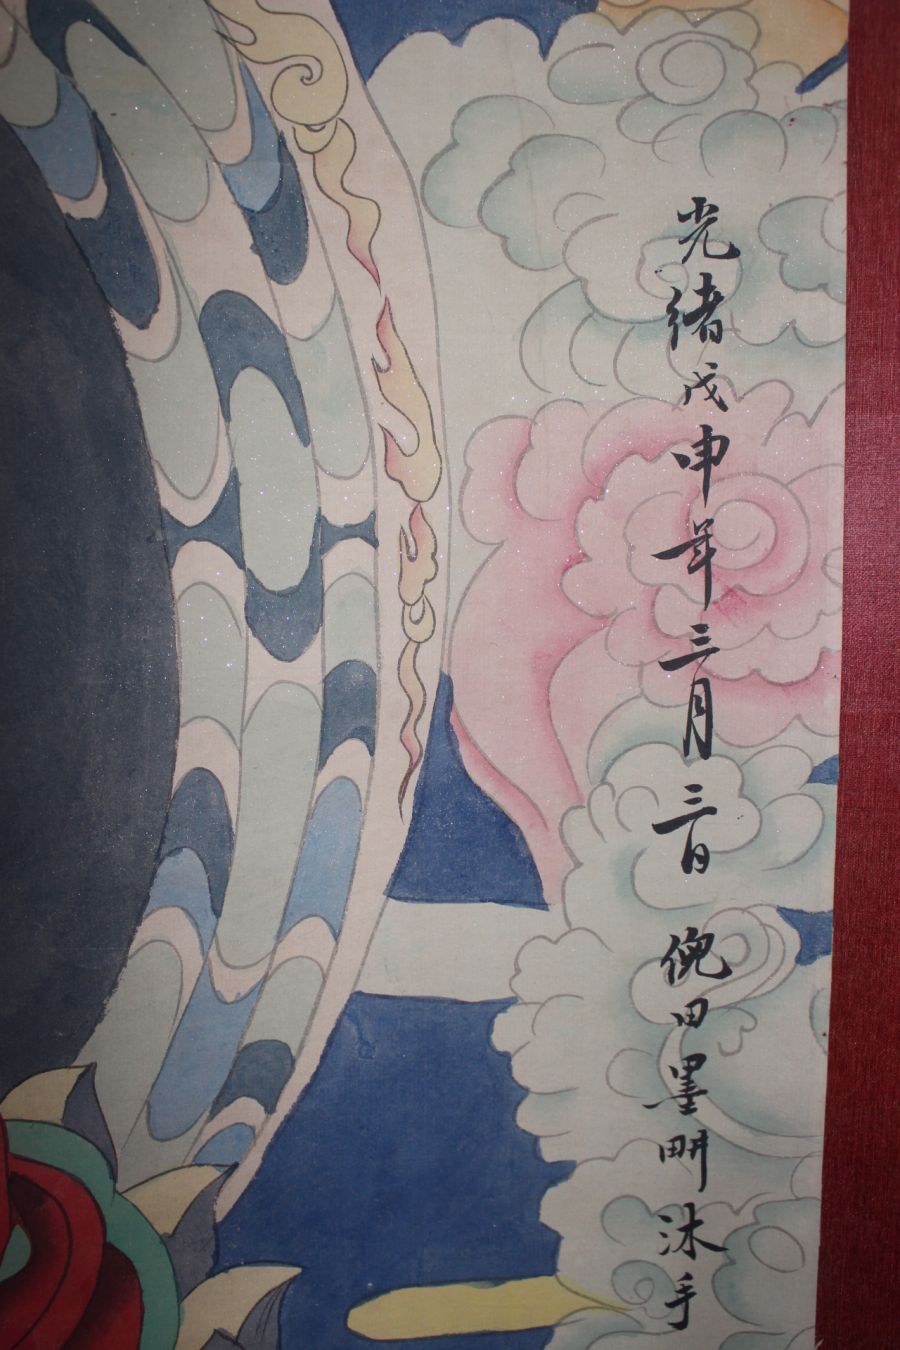 光緒戊申年三月三日倪田墨畊沐手